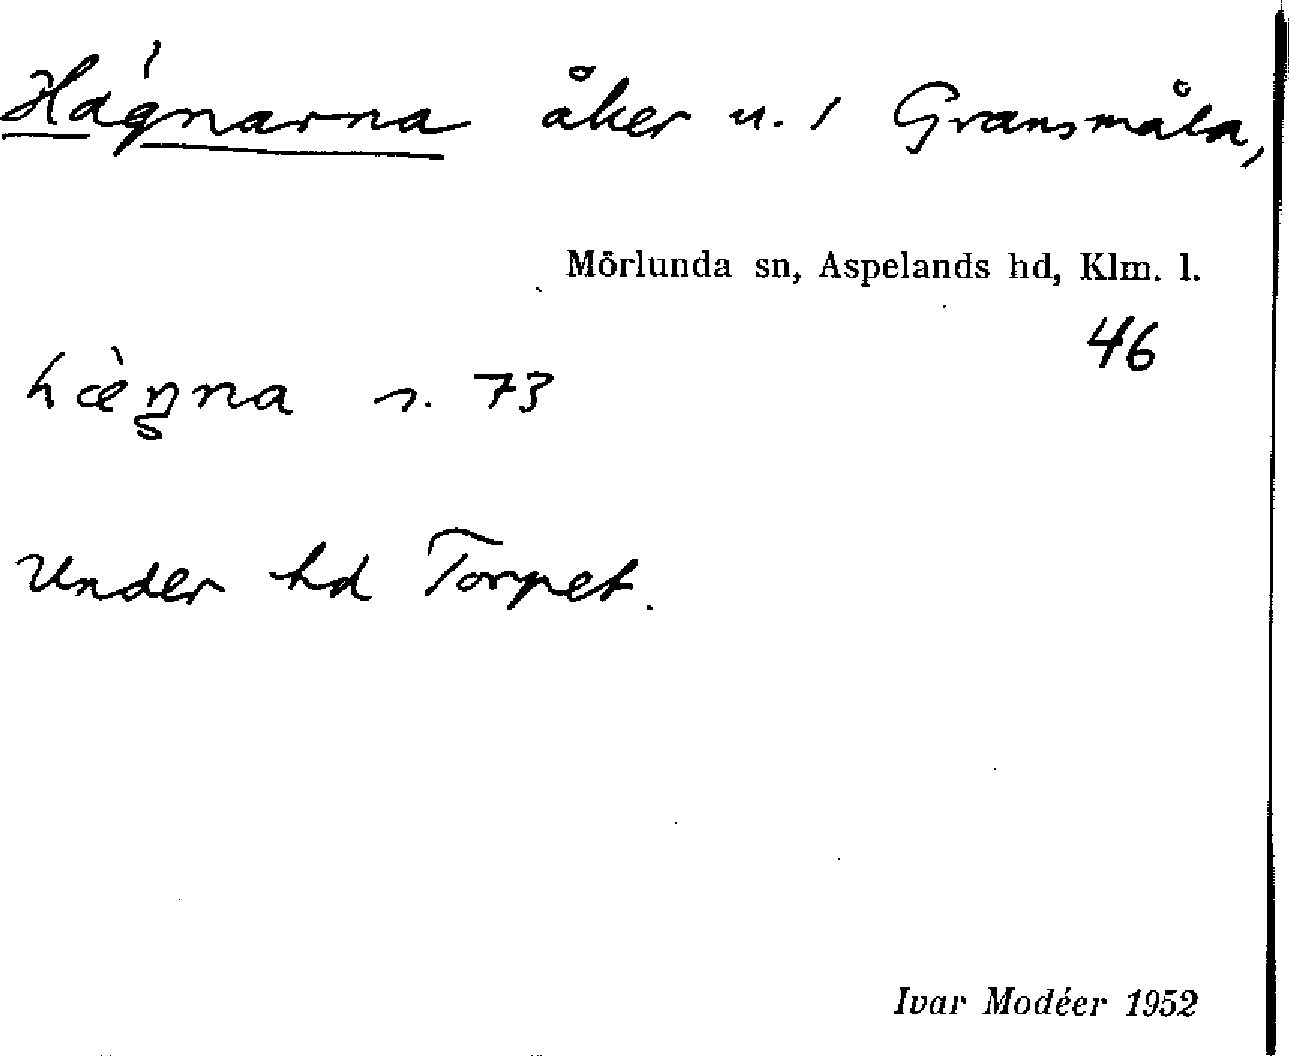 Hágnarna åker u. 1 Gransmåla,
Mörlunda sn, Aspelands hd, Klm. l.
46
s. 73
Under hd Torpet.
Ivar Modéer 1952